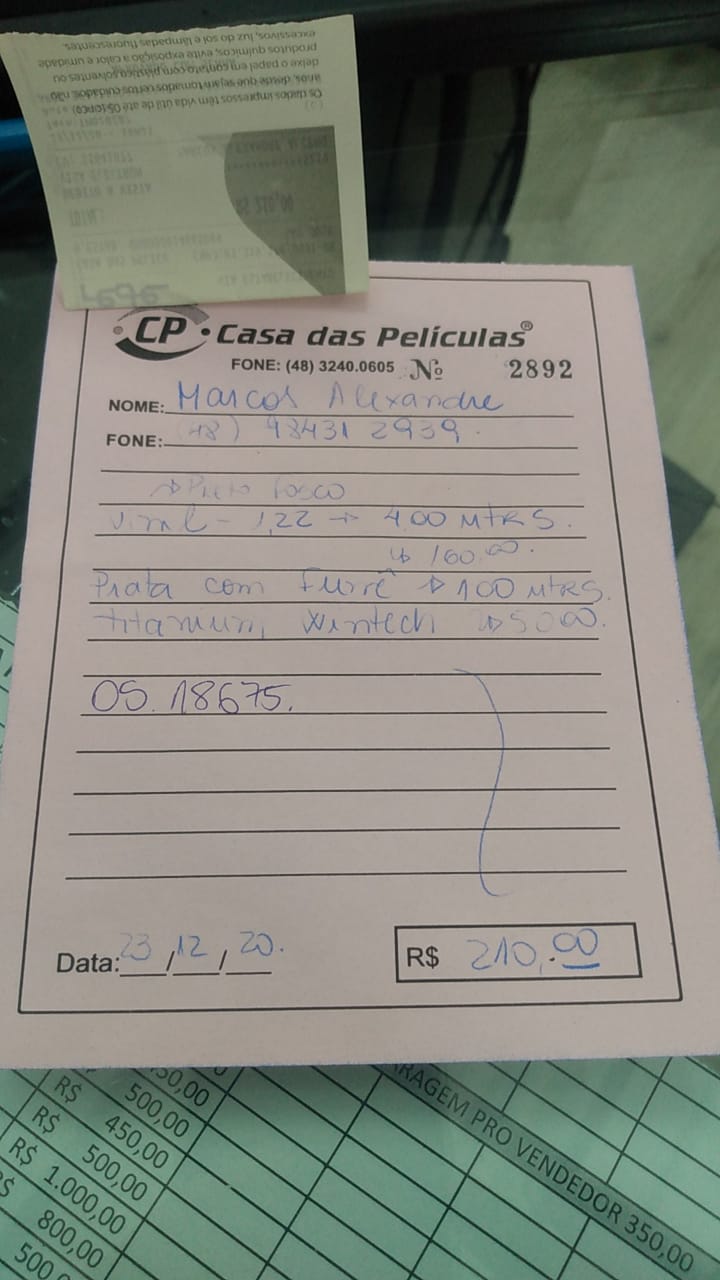 excessivos, luz do sol e lâmpadas fluorescentes.
produtos químicos, evite exposição a calor e umidade
deixe o papel em contato com plástico, solventes ou
anos, desde que sejam tomados certos cuidados: não
Os dados impressos têm vida útil de até 05 (cinco)
CP Casa das Películas®
FONE: (48) 3240.0605 Nº 2892
NOME: Marcos Alexandre
FONE: (48) 98431 2939.
→ Preto Fosco
Vinil - 1,22 → 4,00 MTRS.
↳ 160,00.
Prata com → 1,00 MTRS.
titanium, Wintech → 50,00.
OS. 18675.
Data: 23/12/20.
R$ 210,00
50,00
R$ 500,00
R$ 450,00
R$ 500,00
R$ 1.000,00
800,00
500,
RAGEM PRO VENDEDOR 350,00